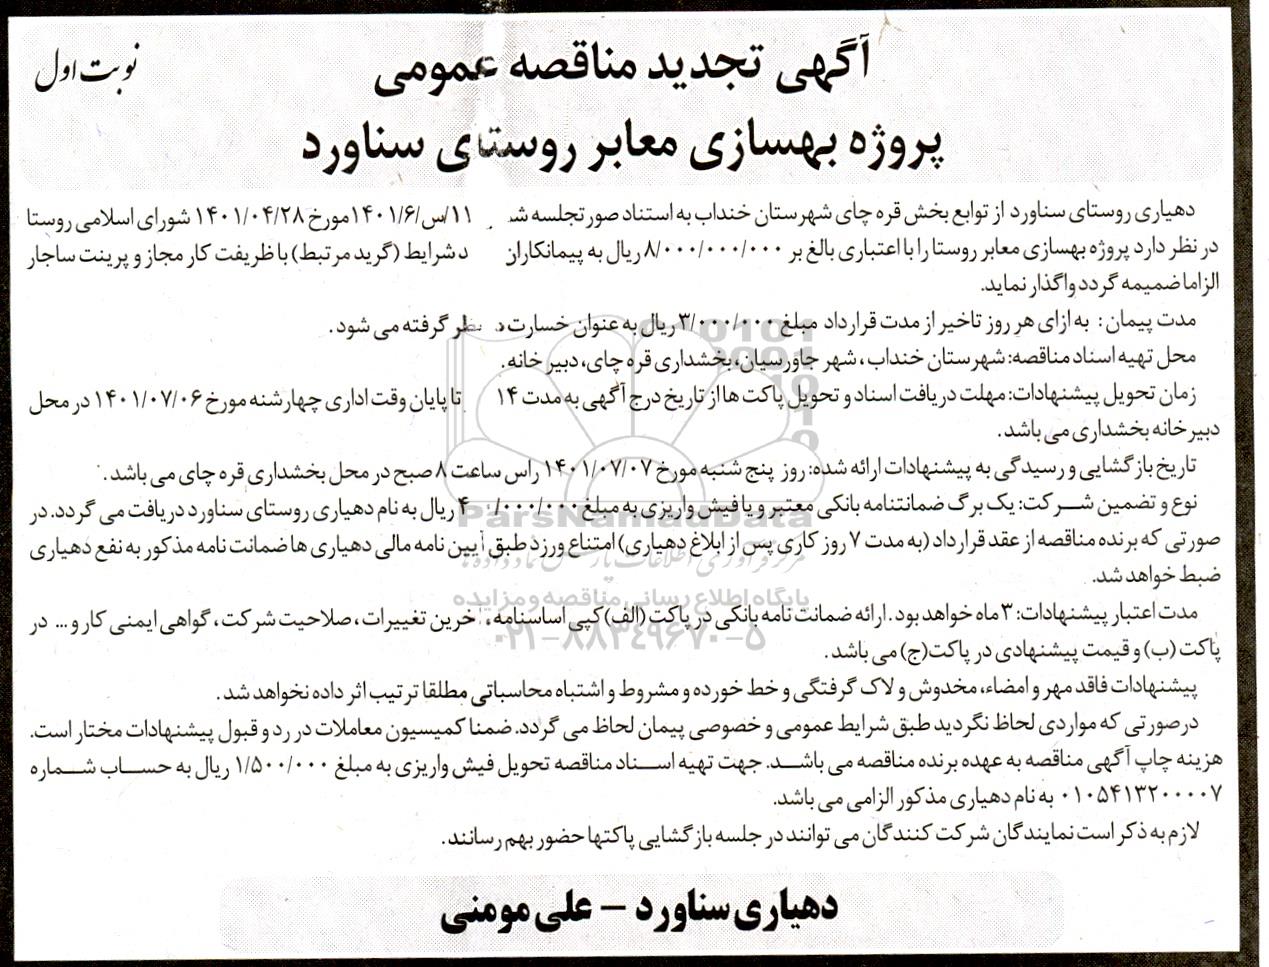 آگهی تجدید مناقصه عمومی
نوبت اول
پروژه بهسازی معابر روستای سناورد
دهیاری روستای سناورد از توابع بخش قره چای شهرستان خنداب به استناد صورتجلسه ۱۱/س/۱۴۰۱/۶مورخ ۱۴۰۱/۰۴/۲۸ شورای اسلامی روستا
در نظر دارد پروژه بهسازی معابر روستا را با اعتباری بالغ بر ۸/۰۰۰/۰۰۰/۰۰۰ ریال به پیمانکاران شرایط (گرید مرتبط) با ظریفت کار مجاز و پرینت ساجار
الزاما ضمیمه گردد واگذار نماید.
مدت پیمان : به ازای هر روز تاخیر از مدت قرارداد مبلغ ۳/۰۰۰/۰۰۰ ریال به عنوان خسارت نظر گرفته می شود .
محل تهیه اسناد مناقصه: شهرستان خنداب ، شهر جاورسیان، بخشداری قره چای، دبیر خانه.
زمان تحویل پیشنهادات: مهلت دریافت اسناد و تحویل پاکت ها از تاریخ درج آگهی به مدت ۱۴ تا پایان وقت اداری چهارشنه مورخ ۱۴۰۱/۰۷/۰۶ در محل
دبیرخانه بخشداری می باشد .
تاریخ بازگشایی و رسیدگی به پیشنهادات ارائه شده: روز پنج شنبه مورخ ۱۴۰۱/۰۷/۰۷ راس ساعت ۸ صبح در محل بخشداری قره چای می باشد .
نوع و تضمین شرکت: یک برگ ضمانتنامه بانکی معتبر و یا فیش واریزی به مبلغ ریال به نام دهیاری روستای سناورد دریافت می گردد. در
صورتی که برنده مناقصه از عقد قرارداد (به مدت ۷ روز کاری پس از ابلاغ دهیاری) امتناع ورزد طبق آیین نامه مالی دهیاری ها ضمانت نامه مذکور به نفع دهیاری
ضبط خواهد شد.
مدت اعتبار پیشنهادات: ۳ ماه خواهد بود . ارائه ضمانت نامه بانکی در پاکت (الف) کپی اساسنامه، آخرین تغییرات، صلاحیت شرکت، گواهی ایمنی کار و... در
پاکت (ب) و قیمت پیشنهادی در پاکت(ج) می باشد .
پیشنهادات فاقد مهر و امضاء، مخدوش و لاک گرفتگی و خط خورده و مشروط و اشتباه محاسباتی مطلقا ترتیب اثر داده نخواهد شد .
درصورتی که مواردی لحاظ نگردید طبق شرایط عمومی و خصوصی پیمان لحاظ می گردد. ضمنا کمیسیون معاملات در رد و قبول پیشنهادات مختار است.
هزینه چاپ آگهی مناقصه به عهده برنده مناقصه می باشد. جهت تهیه اسناد مناقصه تحویل فیش واریزی به مبلغ ۱/۵۰۰/۰۰۰ ریال به حساب شماره
۰۱۰۵۴۱۳۲۰۰۰۰۷ به نام دهیاری مذکور الزامی می باشد.
لازم به ذکر است نمایندگان شرکت کنندگان می توانند در جلسه بازگشایی پاکتها حضور بهم رسانند.
دهیاری سناورد – علی مومنی
ParsNamadData
مرکز فرآوری اطلاعات پارس نماد داده ها
پایگاه اطلاع رسانی مناقصه و مزایده
۰۲۱-۸۸۳۴۹۶۷۰-۵